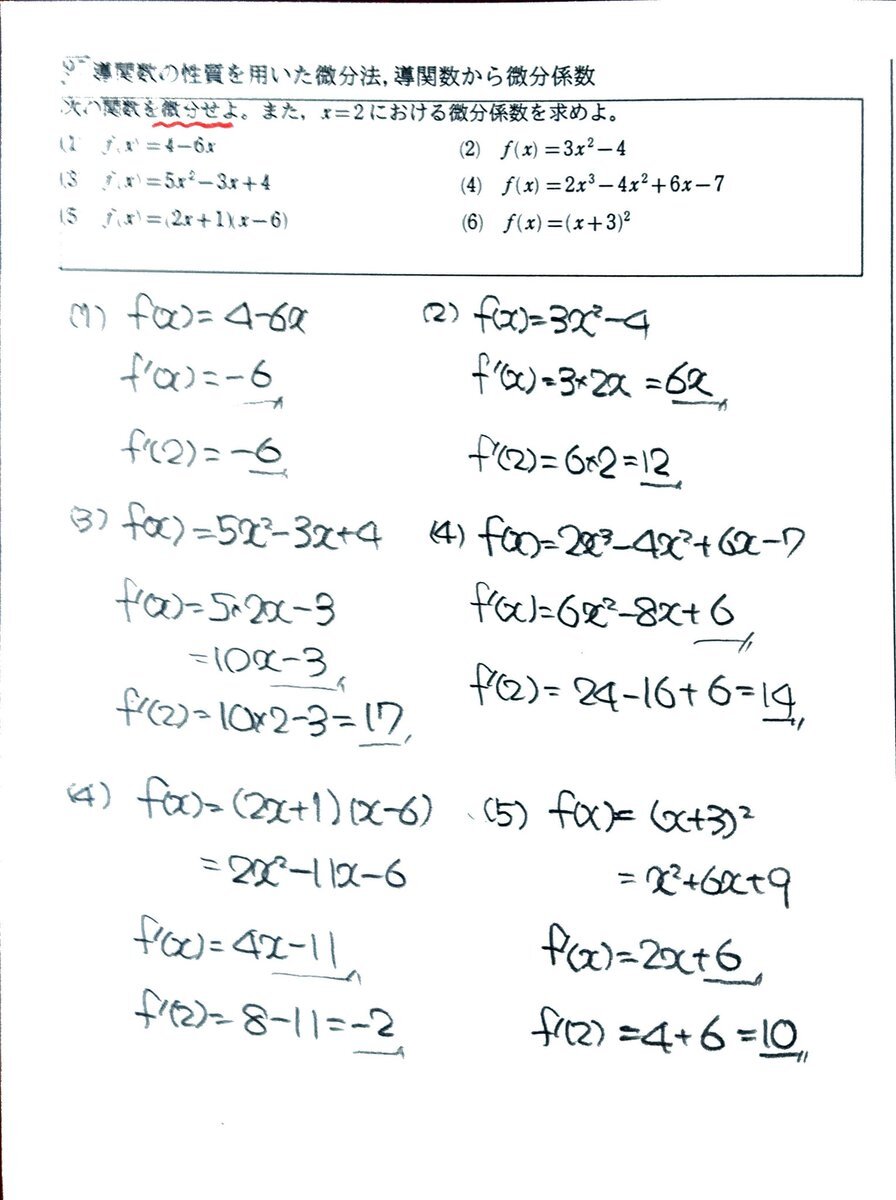 導関数の性質を用いた微分法, 導関数から微分係数
次の関数を微分せよ。また, x=2 における微分係数を求めよ。
(1) f(x)=4−6x (2) f(x)=3x²−4
(3) f(x)=5x²−3x+4 (4) f(x)=2x³−4x²+6x−7
(5) f(x)=(2x+1)(x−6) (6) f(x)=(x+3)²
(1) f(x)=4-6x
f'(x)=-6
f'(2)=-6
(2) f(x)=3x²-4
f'(x)=3×2x=6x
f'(2)=6×2=12
(3) f(x)=5x²-3x+4
f'(x)=5×2x-3
=10x-3
f'(2)=10×2-3=17
(4) f(x)=2x³-4x²+6x-7
f'(x)=6x²-8x+6
f'(2)=24-16+6=14
(4) f(x)=(2x+1)(x-6)
=2x²-11x-6
f'(x)=4x-11
f'(2)=8-11=-2
(5) f(x)=(x+3)²
=x²+6x+9
f'(x)=2x+6
f'(2)=4+6=10